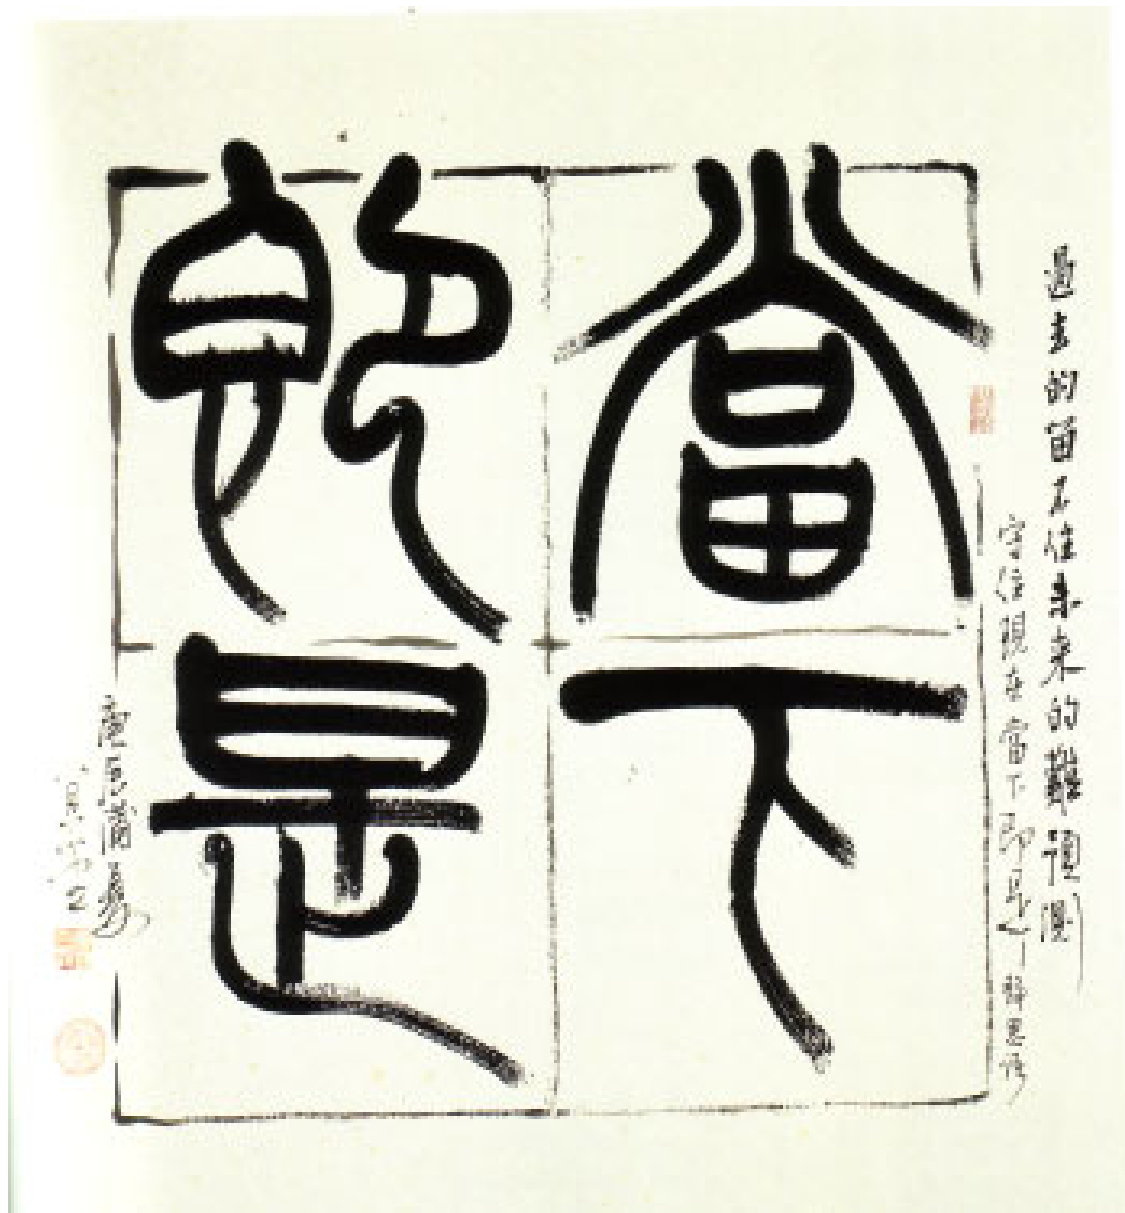 當下
即是
過去的留不住未來的難預測
守住現在當下即是 靜思語